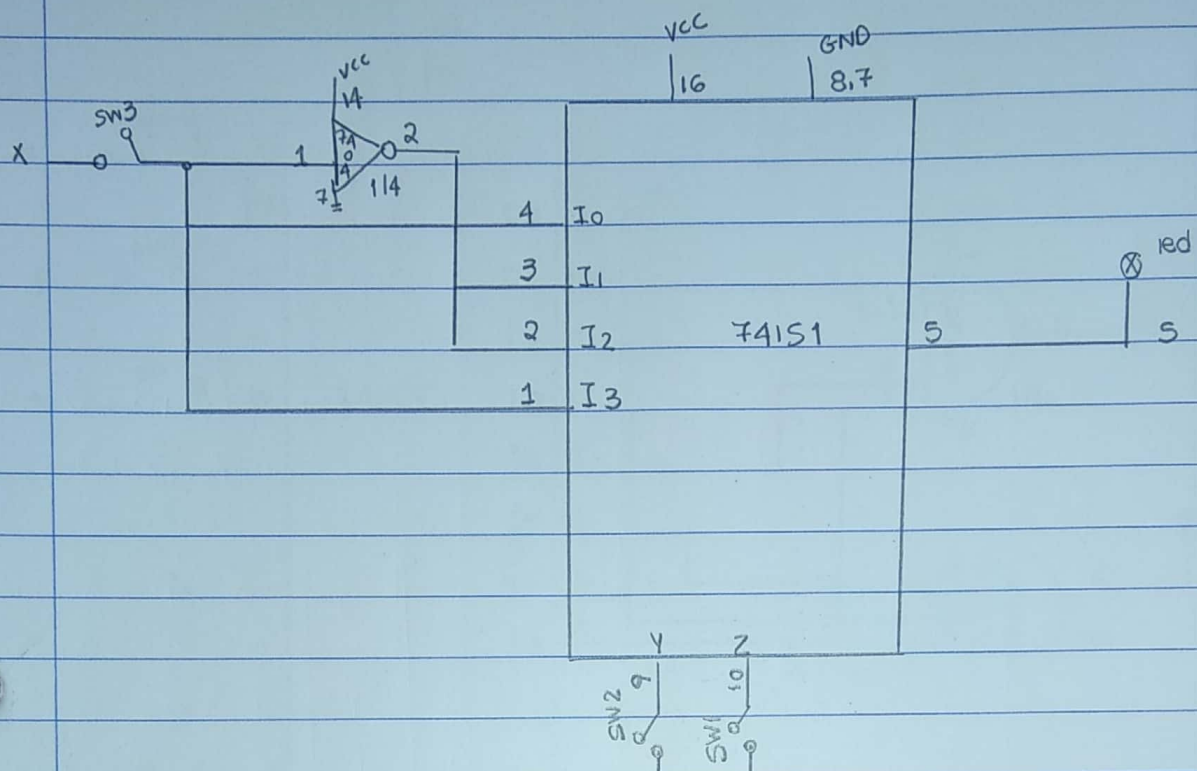 VCC
GND
16
8,7
VCC
14
SW3
X
1
7404
2
7
1/4
4 I0
3 I1
2 I2
1 I3
74151
5
led
S
Y Z
9 10
SW2 SW1